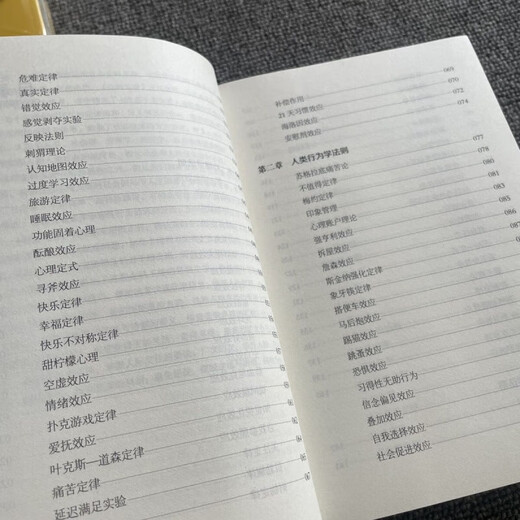 危难定律
真实定律
错觉效应
感觉剥夺实验
反映法则
刺猬理论
认知地图效应
过度学习效应
旅游定律
睡眠效应
功能固着心理
酝酿效应
心理定式
寻斧效应
快乐定律
幸福定律
快乐不对称定律
甜柠檬心理
空虚效应
情绪效应
扑克游戏定律
爱抚效应
叶克斯—道森定律
痛苦定律
延迟满足实验
069
补偿作用 070
21 天习惯效应 072
海洛因效应 074
安慰剂效应
第二章 人类行为学法则 077
苏格拉底痛苦论 078
不值得定律 080
梅约定律 081
印象管理 083
心理账户理论 085
强亨利效应 086
拆屋效应 087
詹森效应
斯金纳强化定律
象牙筷定律
搭便车效应
马后炮效应
踢猫效应
跳蚤效应
恐惧效应
习得性无助行为
信念偏见效应
叠加效应
自我选择效应
社会促进效应